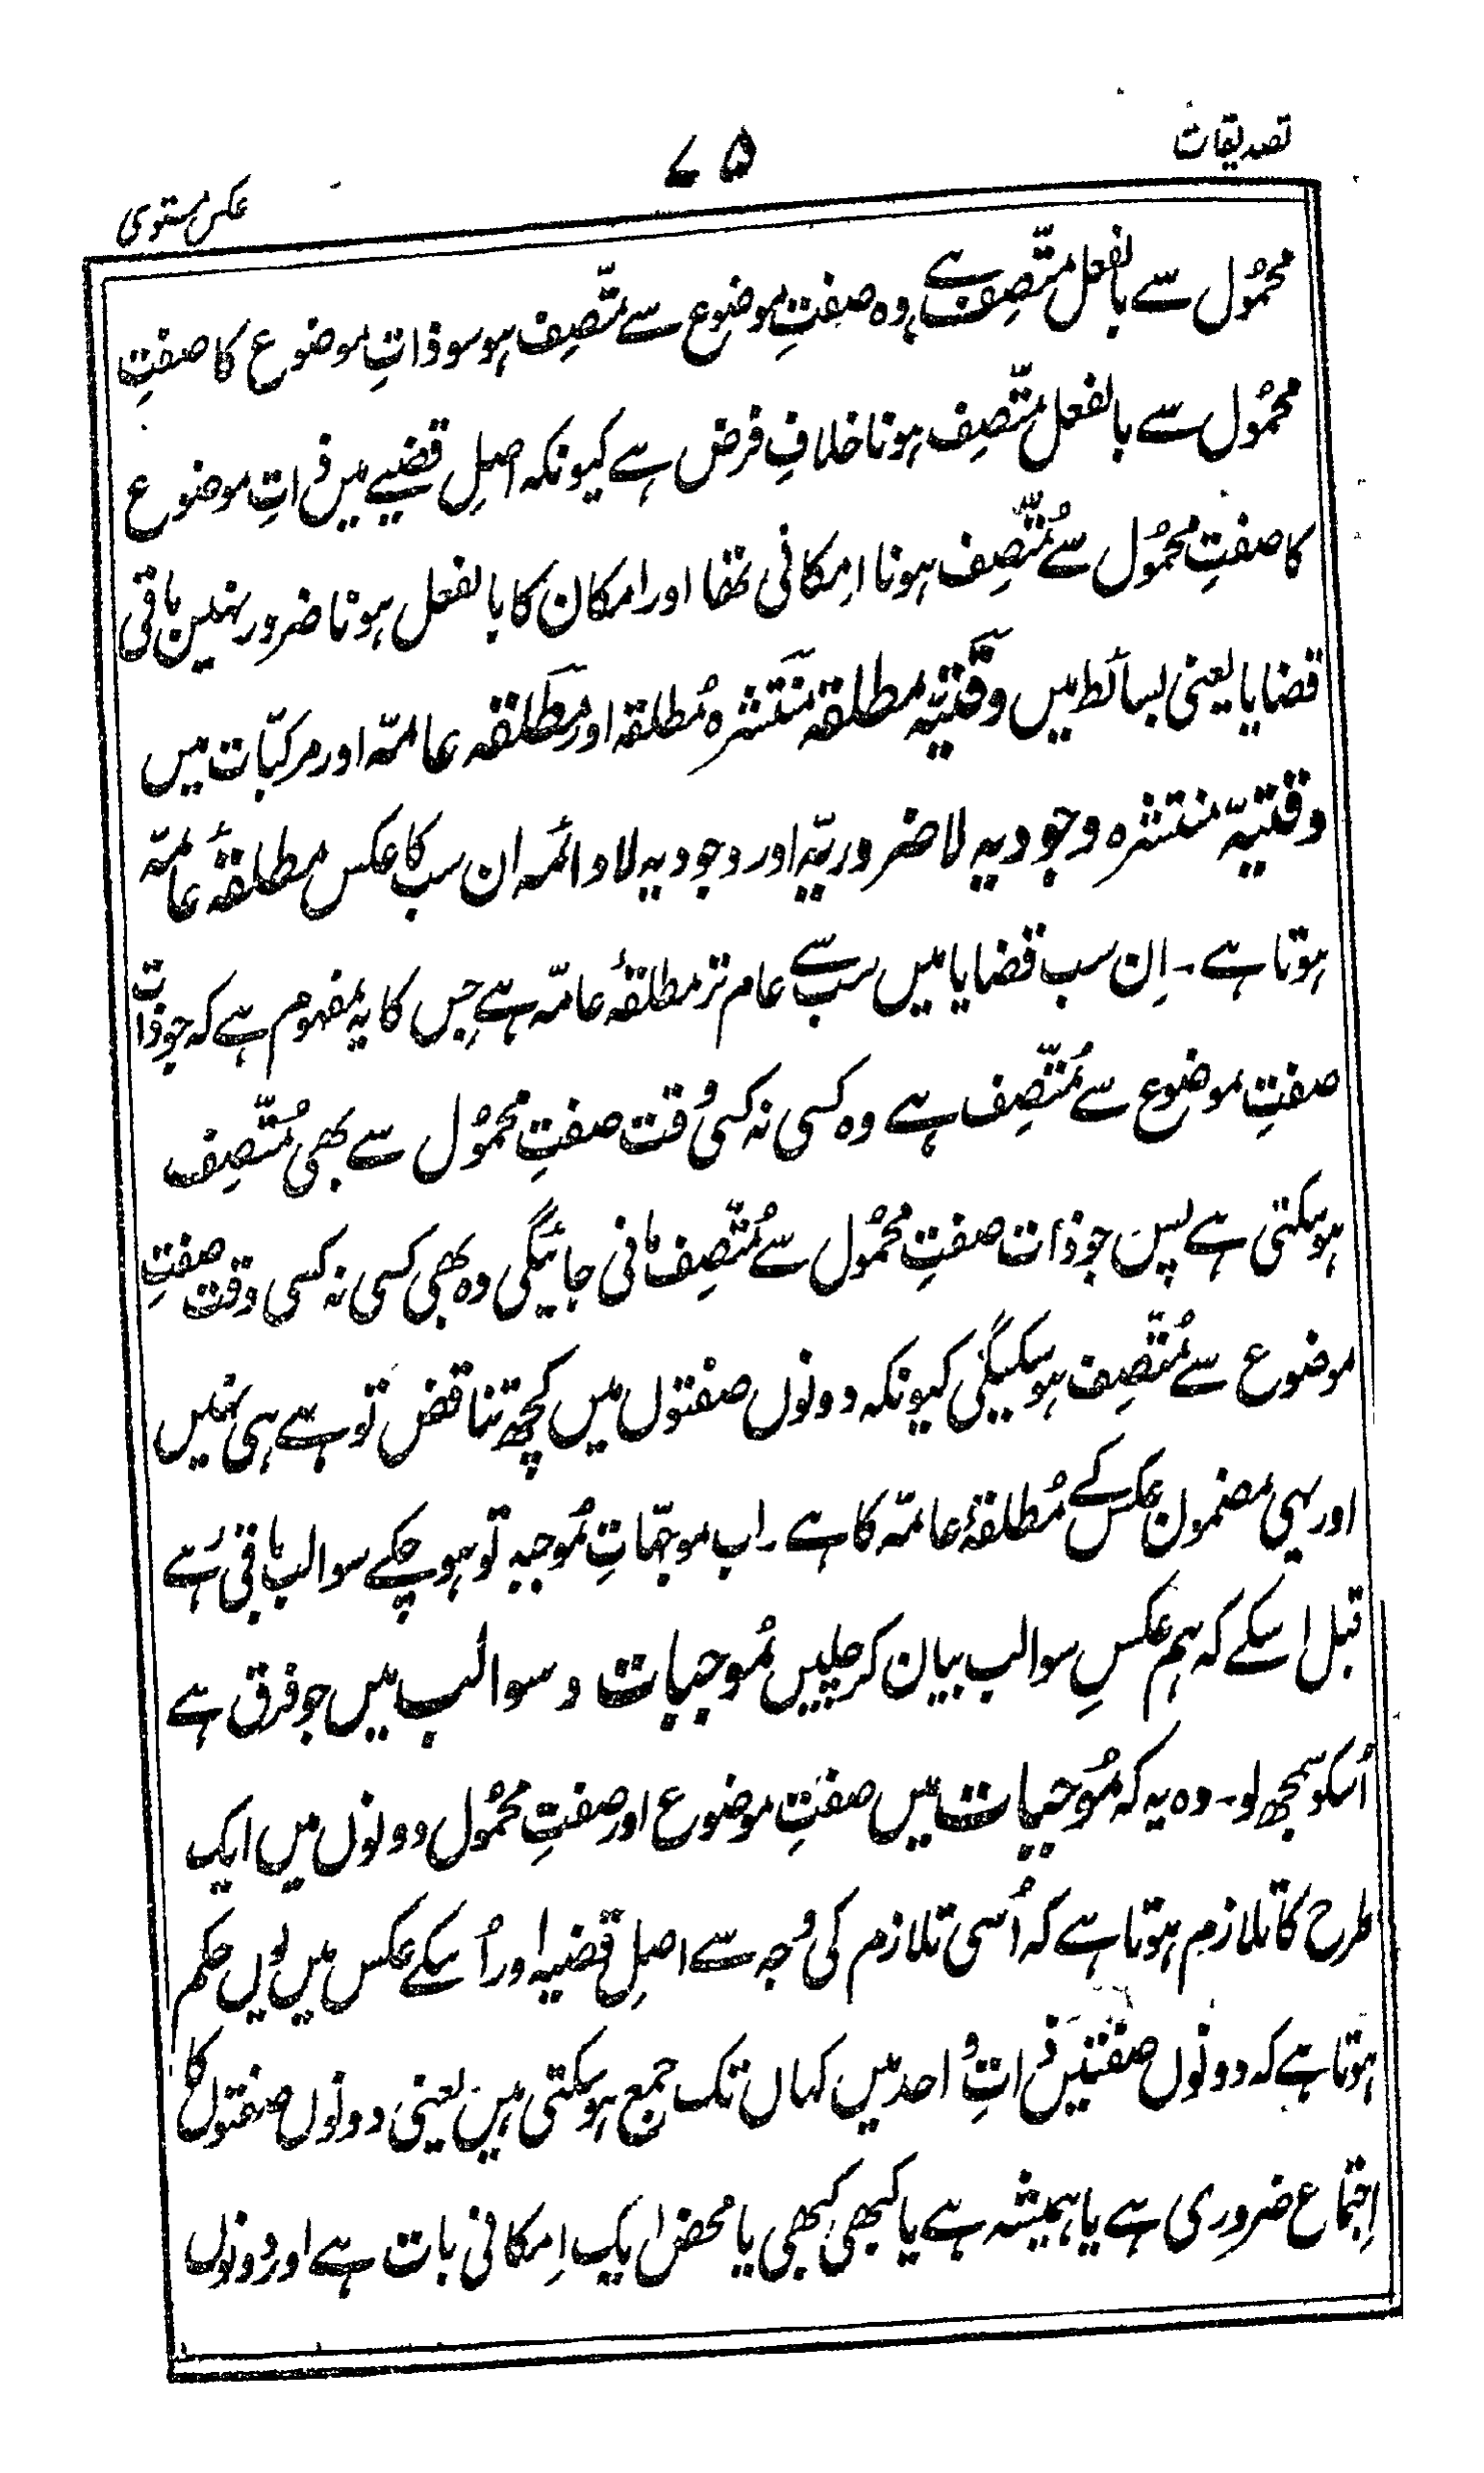 تصدیقات
۷۵
عکس مستوی
محمُول سے بالفعل متّصِف ہے، وہ صفتِ موضوع سے متّصِف ہو سو ذاتِ موضوع کا صفتِ
محمُول سے بالفعل متّصِف ہونا خلافِ فرض ہے کیونکہ اصلِ قضیے میں ذاتِ موضوع
کا صفتِ محمُول سے مُتّصِف ہونا اِمکانی تھا اور امکان کا بالفعل ہونا ضرور نہیں باقی
قضایا یعنی بسائط میں وقتیّہ مطلقہ منتشرہ مُطلقہ اور مطلقہ عامّہ اور مرکبّات میں
وقتیّہ منتشرہ وجودیہ لا ضروریّہ اور وجودیہ لا دائمہ ان سب کا عکس مطلقۂ عامّہ
ہوتا ہے۔ اِن سب قضایا میں سب سے عام تر مطلقۂ عامّہ ہے جس کا یہ مفہوم ہے کہ جو ذات
صفتِ موضوع سے مُتّصِف ہے وہ کسی نہ کسی وقت صفتِ محمُول سے بھی مُتّصِف
ہو سکتی ہے پس جو ذات صفتِ محمُول سے مُتّصِف مانی جائیگی وہ بھی کسی نہ کسی وقت صفتِ
موضوع سے مُتّصِف ہو سکیگی کیونکہ دونوں صفتوں میں کچھ تناقض تو ہے ہی نہیں
اور یہی مضمون عکس کے مُطلقۂ عامّہ کا ہے۔ اب موجہّاتِ مُوجبہ تو ہو چکے سوالب باقی رہے
قبل اسکے کہ ہم عکسِ سوالب بیان کر چلیں مُوجبات و سوالب میں جو فرق ہے
اُسکو سمجھ لو۔ وہ یہ کہ مُوجبات میں صفتِ موضوع اور صفتِ محمُول دونوں میں ایک
طرح کا تلازم ہوتا ہے کہ اُسی تلازم کی وجہ سے اصلِ قضیہ اور اُسکے عکس میں یوں حکم
ہوتا ہے کہ دونوں صفتیں ذاتِ واحد میں کہاں تک جمع ہو سکتی ہیں یعنی دونوں صفتوں کا
اِجتماع ضروری ہے یا ہمیشہ ہے یا کبھی کبھی یا محض ایک اِمکانی بات ہے اور دونوں